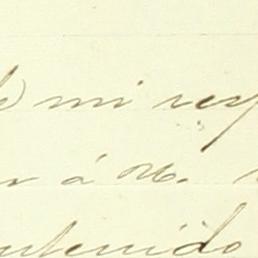 mi resp
á U.
ntenido